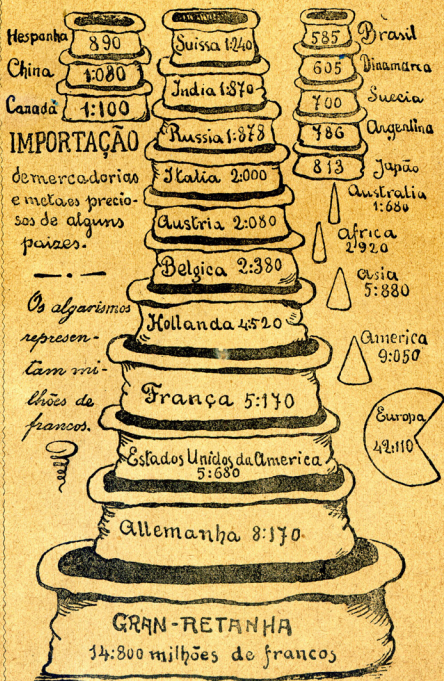 Hespanha 890
China 1:080
Canadá 1:100
IMPORTAÇÃO
de mercadorias
e metaes precio-
sos de alguns
paizes.
Os algarismos
represen-
tam mi-
lhões de
francos.
Suissa 1:240
India 1:870
Russia 1:878
Italia 2:000
Austria 2:080
Belgica 2:380
Hollanda 4:520
França 5:170
Estados Unidos da America
5:680
Allemanha 8:170
GRAN-RETANHA
14:800 milhões de francos
585 Brasil
605 Dinamarca
700 Suecia
786 Argentina
813 Japão
Australia
1:680
Africa
2:920
Asia
5:880
America
9:050
Europa
42:110